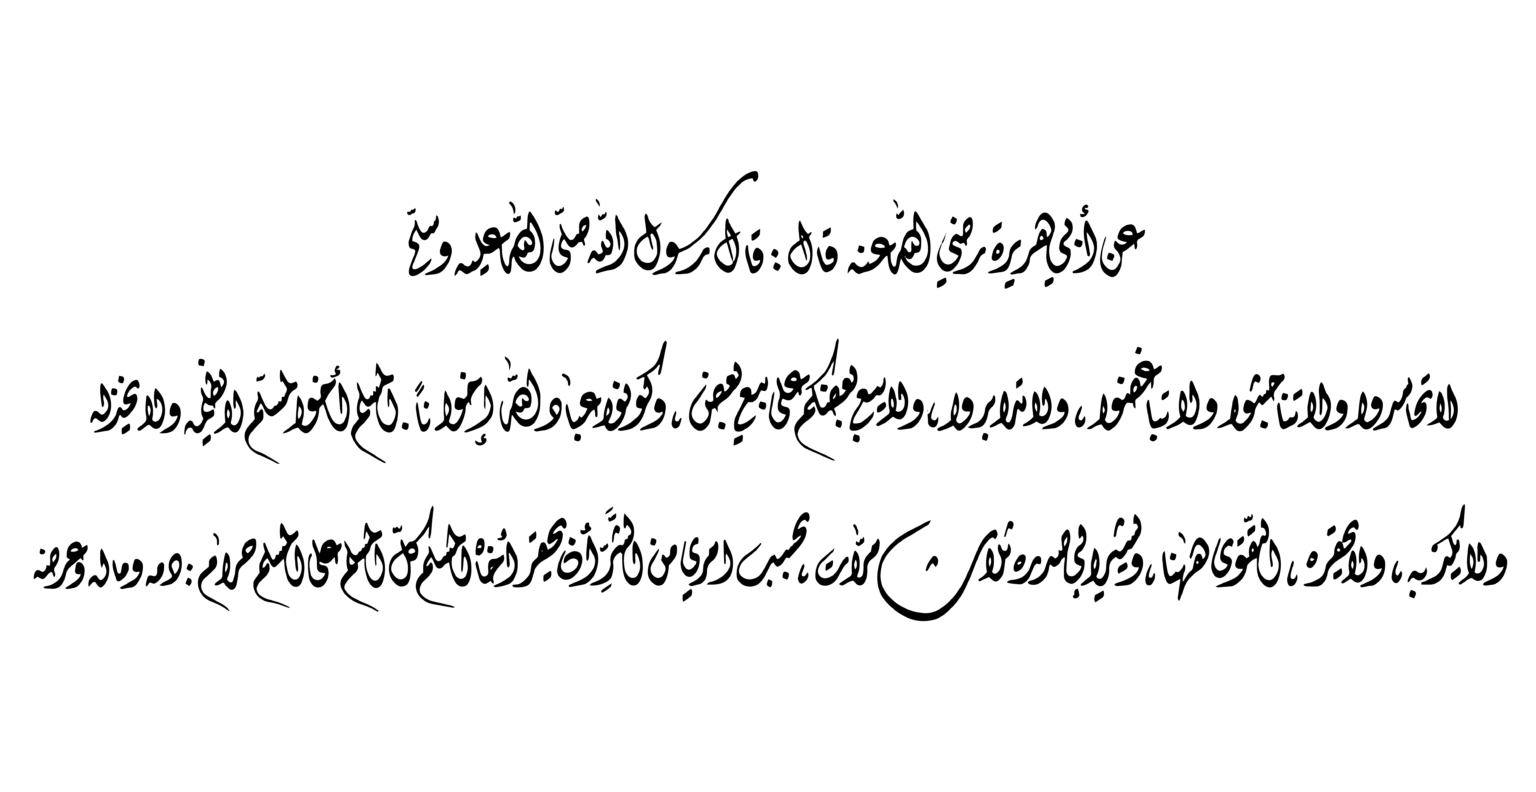 عن أبي هريرة رضي الله عنه قال : قال رسول الله صلّى الله عليه وسلّم
لا تحاسدوا ولا تناجشوا ولا تباغضوا ، ولا تدابروا ، ولا يبع بعضكم على بيع بعض ، وكونوا عباد الله إخوانًا . المسلم أخو المسلم لا يظلمه ولا يخذله
ولا يكذبه ، ولا يحقره ، التقوى ههنا ، ويشير إلى صدره ثلاث مرّات ، بحسب امرئ من الشّرّ أن يحقر أخاه المسلم كلّ المسلم على المسلم حرام : دمه وماله وعرضه